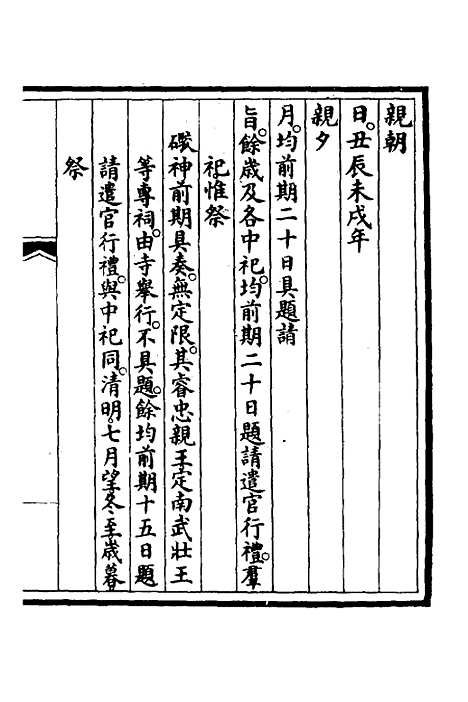 親朝
日。丑辰未戌年
親夕
月。均前期二十日具題請
旨。餘歲及各中祀。均前期二十日題請遣官行禮。羣
祀。惟祭
礮神前期具奏。無定限。其睿忠親王定南武壯王
等專祠。由寺舉行。不具題。餘均前期十五日題
請遣官行禮。與中祀同。清明。七月望。冬至。歲暮
祭